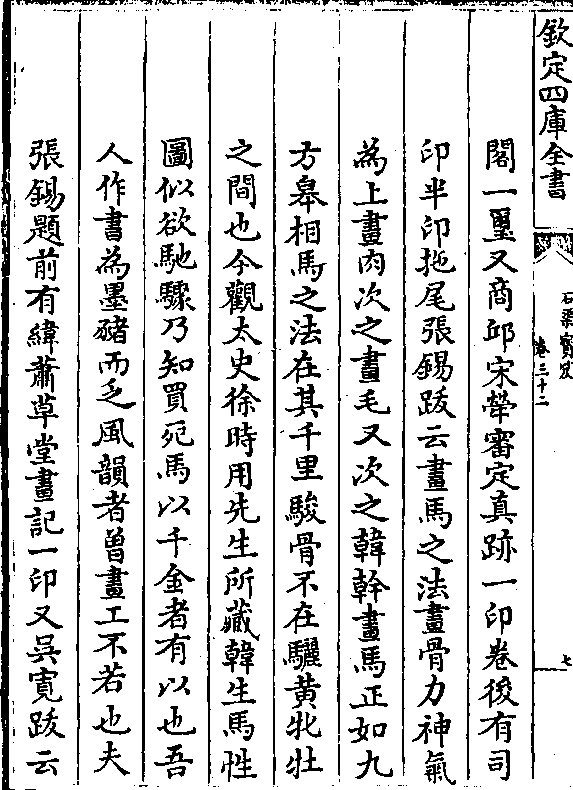 欽定四庫全書
石渠寶笈
卷三十二
七
閣一璽又商邱宋犖審定真跡一印卷後有司
印半印拖尾張錫跋云畫馬之法畫骨力神氣
為上畫肉次之畫毛又次之韓幹畫馬正如九
方皋相馬之法在其千里駿骨不在驪黃牝牡
之間也今觀太史徐時用先生所藏韓生馬性
圖似欲馳驟乃知買死馬以千金者有以也吾
人作書為墨豬而乏風韻者曽畫工不若也夫
張錫題前有緯蕭草堂畫記一印又吳寛跋云